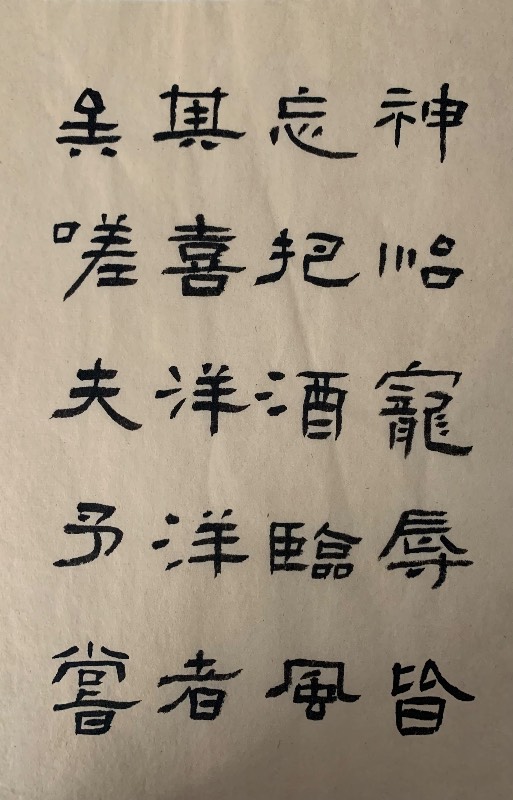 神怡寵辱皆
忘把酒臨風
其喜洋洋者
矣嗟夫予嘗